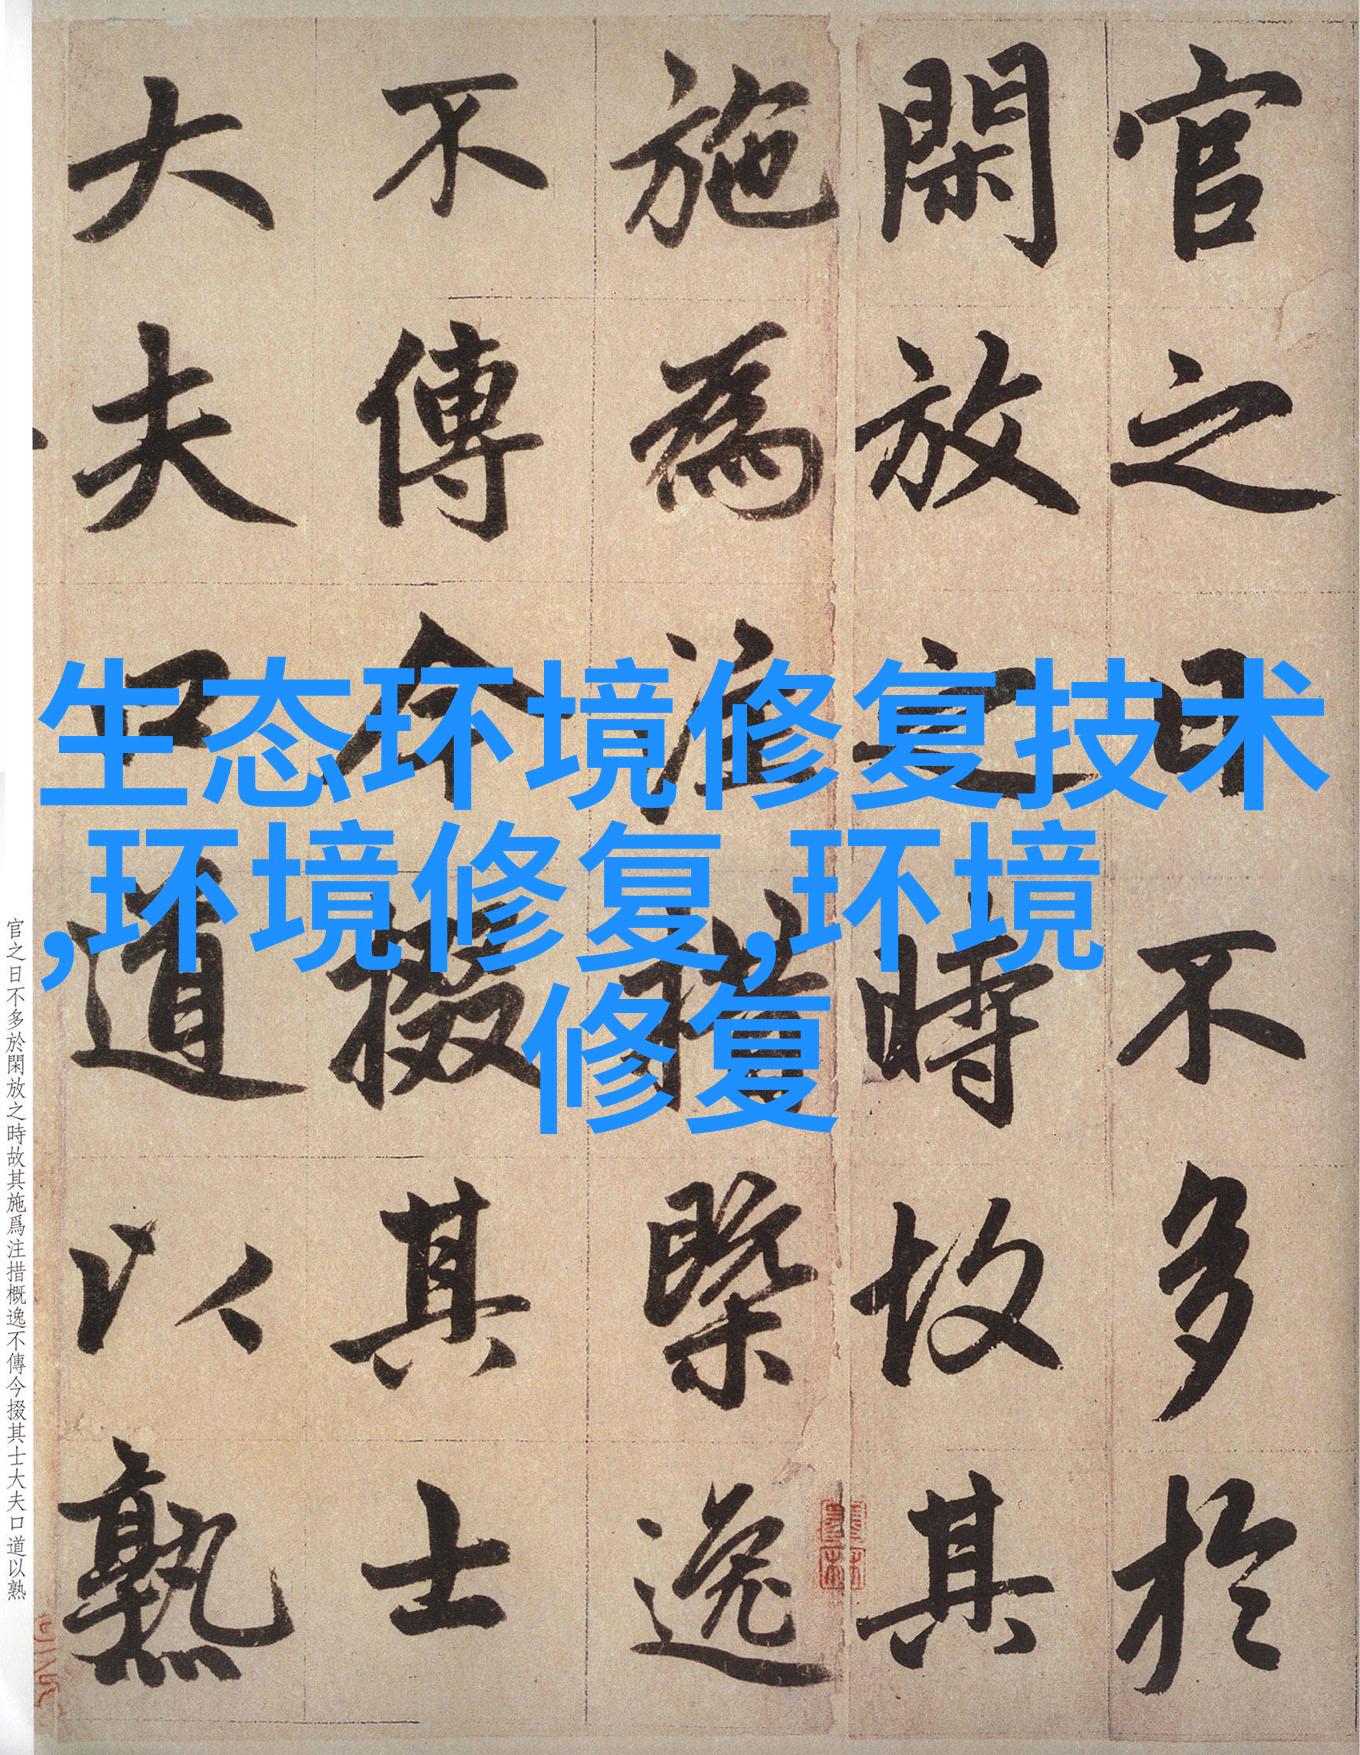 官之日不多於
閑放之時故其
施為注措槩逸
不傳今掇其士
大夫口道以熟
生态环境修复技术
,环境修复,环境
修复
官之日不多於閑放之時故其施爲注措概逸不傳今掇其士大夫口道以熟